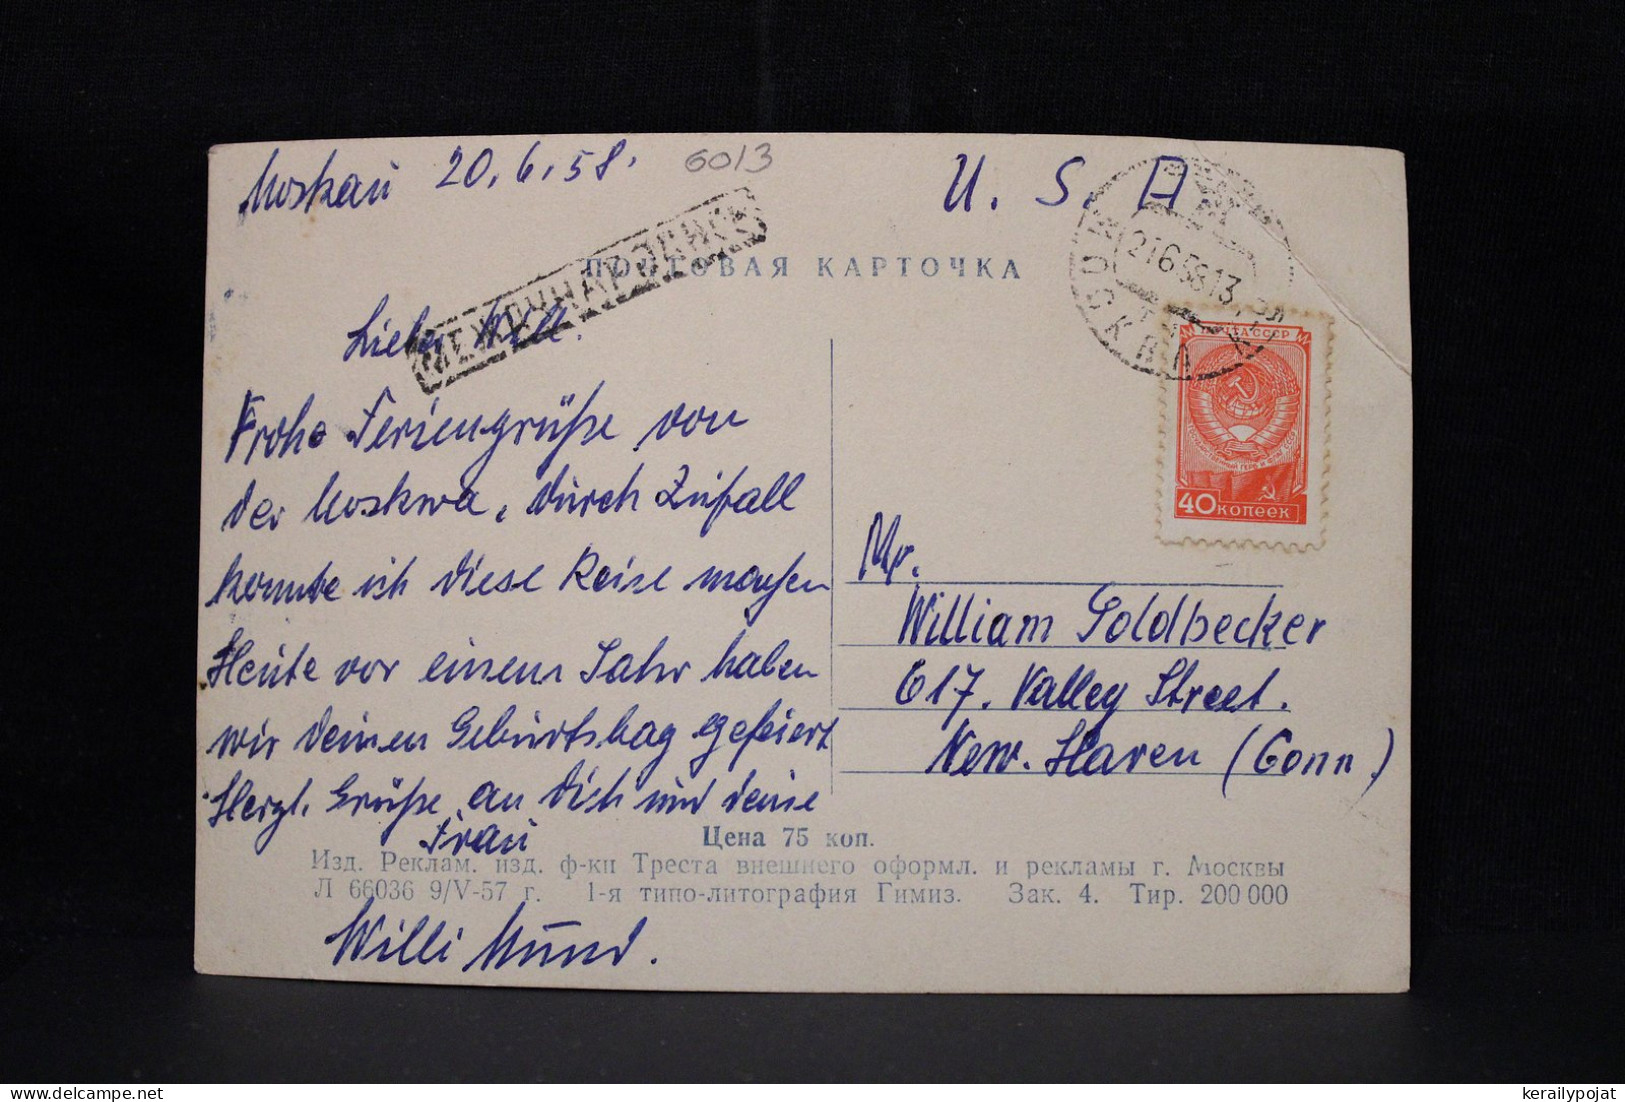 Moskau 20.6.58.
6013
U. S. A
МЕЖДУНАРОДНОЕ
ПОЧТОВАЯ КАРТОЧКА
МОСКВА
21 6 58 13
ПОЧТА СССР
40 КОПЕЕК
Lieber Will.
Frohe Feriengrüße von
der Moskwa, durch Zufall
konnte ich diese Reise machen
Heute vor einem Jahr haben
wir deinen Geburtstag gefeiert
Herzl. Grüße an Dich und deine
Frau
Willi Mund.
Mr.
William Goldbecker
617. Valley Street.
New. Haven (Conn.)
Цена 75 коп.
Изд. Реклам. изд. ф-ки Треста внешнего оформл. и рекламы г. Москвы
Л 66036 9/V-57 г. 1-я типо-литография Гимиз. Зак. 4. Тир. 200 000
kerailypojat